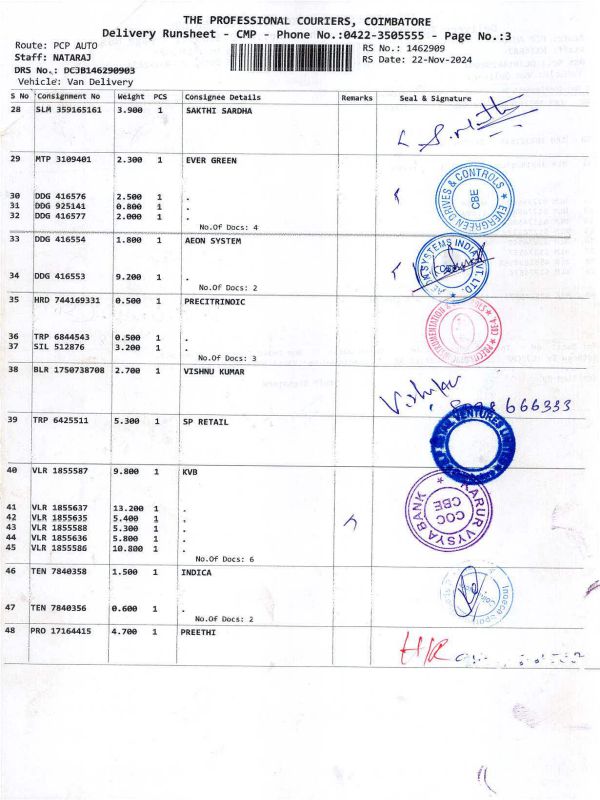 THE PROFESSIONAL COURIERS, COIMBATORE
Delivery Runsheet - CMP - Phone No.:0422-3505555 - Page No.:3
Route: PCP AUTO RS No.: 1462909
Staff: NATARAJ RS Date: 22-Nov-2024
DRS No.: DCJB146290903
Vehicle: Van Delivery
S No Consignment No Weight PCS Consignee Details Remarks Seal & Signature
28 SLM 359165161 3.900 1 SAKTHI SARDHA
29 MTP 3109401 2.300 1 EVER GREEN
EVERGREEN DRIVES & CONTROLS
CBE
30 DDG 416576 2.500 1 .
31 DDG 925141 0.800 1 .
32 DDG 416577 2.000 1 .
No.Of Docs: 4
33 DDG 416554 1.800 1 AEON SYSTEM
SYSTEMS INDIA PVT. LTD.
34 DDG 416553 9.200 1 .
No.Of Docs: 2
35 HRD 744169331 0.500 1 PRECITRINOIC
36 TRP 6844543 0.500 1 .
37 SIL 512876 3.200 1 .
No.Of Docs: 3
38 BLR 1750738708 2.700 1 VISHNU KUMAR
666333
39 TRP 6425511 5.300 1 SP RETAIL
VENTURES LIMITED
40 VLR 1855587 9.800 1 KVB
KARUR VYSYA BANK
COC
CBE
41 VLR 1855637 13.200 1 .
42 VLR 1855635 5.400 1 .
43 VLR 1855588 5.300 1 .
44 VLR 1855636 5.800 1 .
45 VLR 1855586 10.800 1 .
No.Of Docs: 6
46 TEN 7840358 1.500 1 INDICA
47 TEN 7840356 0.600 1 .
No.Of Docs: 2
48 PRO 17164415 4.700 1 PREETHI